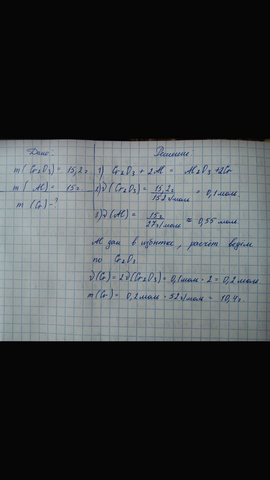 Дано:
m(Cr2O3) = 15,2г
m(Al) = 15г
m(Cr) - ?
Решение
1) Cr2O3 + 2Al = Al2O3 + 2Cr
2) ν(Cr2O3) = 15,2г / 152г/моль = 0,1 моль
3) ν(Al) = 15г / 27г/моль ≈ 0,55 моль
Al дан в избытке, расчёт ведем
по Cr2O3
ν(Cr) = 2ν(Cr2O3) = 0,1моль · 2 = 0,2 моль
m(Cr) = 0,2моль · 52г/моль = 10,4г